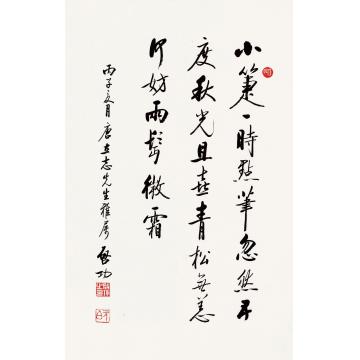 小箑一時點筆忽然
度秋光且喜青松無恙
何妨兩鬢微霜
丙子月唐立志先生雅屬 啟功